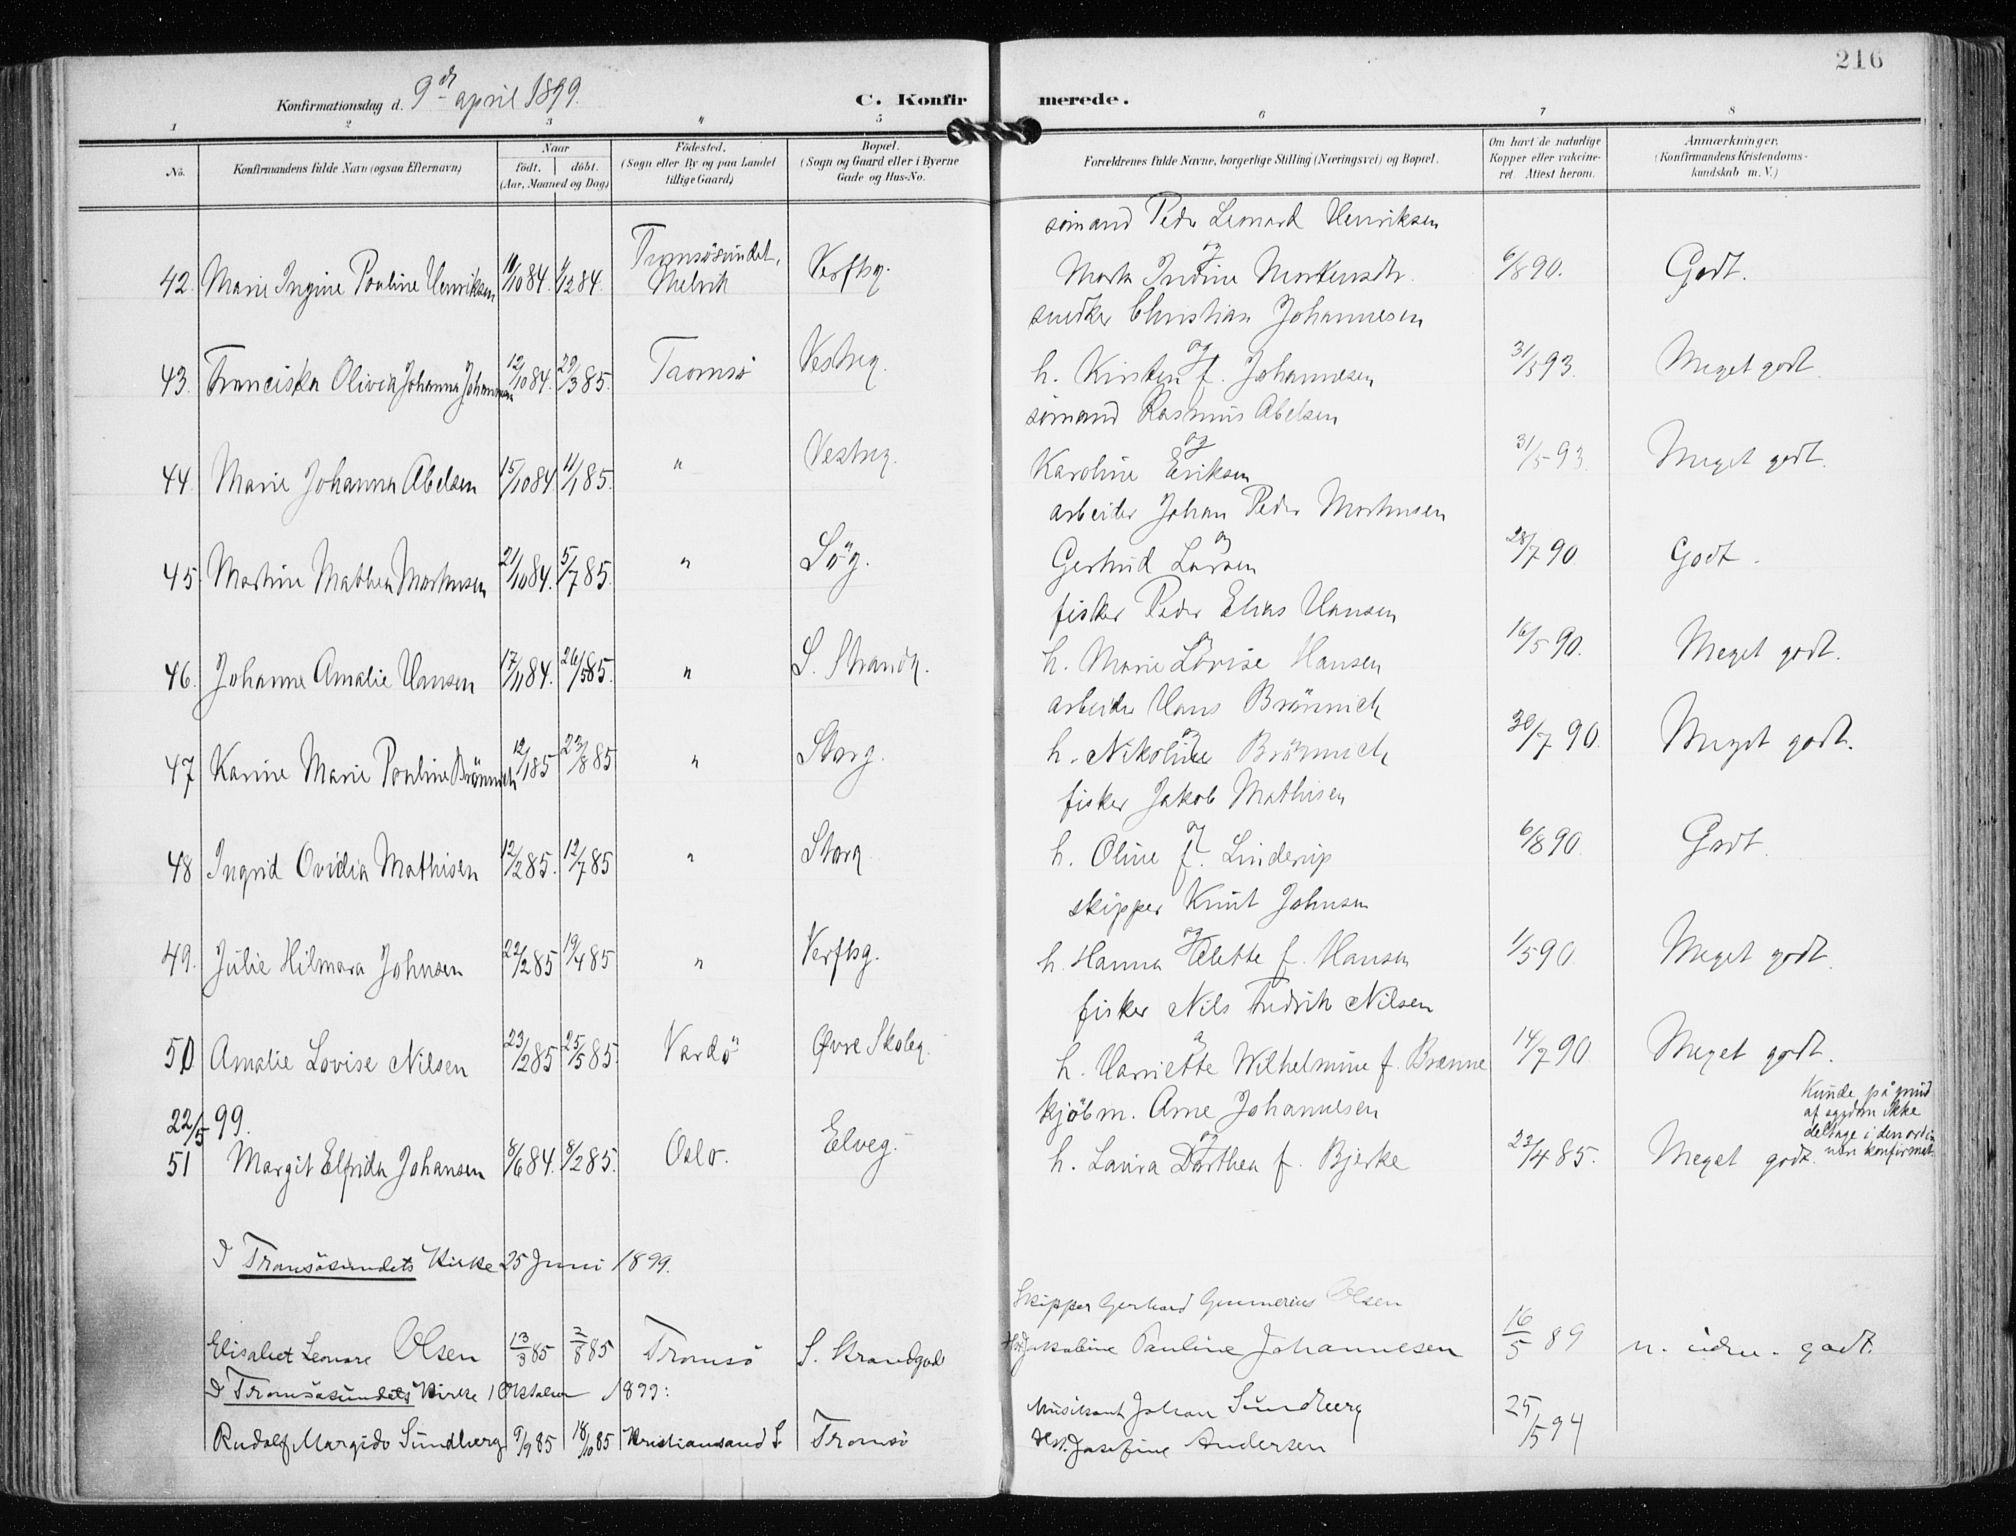 216
Konfirmationsdag d. 9de april 1899.
C. Konfirmerede.
1 2 3 " 5 6 7 8
No. Konfirmandens fulde Navn (ogsaa Efternavn) Naar født. døbt. (Aar, Maaned og Dag) Fødested. (Sogn eller By og paa Landet tillige Gaard) Bopæl. (Sogn og Gaard eller i Byerne Gade og Hus-No. Forældrenes fulde Navne, borgerlige Stilling (Næringsvei) og Bopæl. Om havt de naturlige Kopper eller vakcineret. Attest herom. Anmærkninger. (Konfirmandens Kristendomskundskab m. V.)
sømand Peder Leonard Henriksen
og
42. Marie Ingine Pouline Henriksen 11/10 84. 84. Tromsösundet, Verftsg. Indine Mortensdtr. 6/8 90. Godt.
snedker Christian Johannesen
og
43. Franciska Olivia Johanna Johannesen 12/10 84. 29/3 85. Tromsö Vestreg. h. Kirsten f. Johannesen 31/5 93. Meget godt.
sømand Rasmus Abelsen
og
44. Marie Johanna Abelsen 15/10 84 11/1 85. " Vestreg. Karoline Eriksen 31/5 93. Meget godt.
arbeider Johan Peder Martinsen
og
45. Martine Mathea Martinsen 21/10 84. 5/7 85. " Sög. Gertrud Larsen 28/7 90 Godt.
fisker Peder Elias Hansen
og
46. Johanne Amalie Hansen 17/11 84. 26/5 85. " S. Strandg. h. Marie Lovise Hansen 16/5 90. Meget godt.
arbeider Hans Brönnich
og
47 Karine Marie Pouline Brönnich 12/1 85 23/8 85 " Storg. h. Nikoline Brönnich 30/7 90. Meget godt.
fisker Jakob Mathisen
og
48 Ingrid Ovidia Mathisen 12/2 85. 12/7 85 " Storg h. Oline f. Linderup 6/8 90. Godt.
skipper Knut Johnsen
og
49. Julie Hilmara Johnsen 22/2 85 19/4 85 " Verftsg. h. Hanna Alette f. Hansen 1/5 90. Meget godt.
fisker Nils Fredrik Nilsen
50 Amalie Lovise Nilsen 23/2 85 25/5 85. Vardö Øvre Skoleg. h. Harriette Wilhelmine f. Brænne 14/7 90. Meget godt.
22/5 99. kjöbm. Arne Johannesen
og
51 Margit Elfrida Johansen 8/6 84. 8/2 85. Oslo. Elveg. h. Laura Dorthea f. Bjerke 23/4 85. Meget godt. Kunde på grund
af sygdom ikke
deltage i den ordinære konfirmat.
I Tromsösundets Kirke 25 Juni 1899.
Skipper Gerhard Gunnerius Olsen
Elisabet Leonore Olsen 13/3 85 2/8 85 Tromsö S. Strandgad Jakobine Pauline Johannesen 16/5 89 godt.
I Tromsösundets Kirke 1 Oktober 1899:
Musikant Johan Sundberg
Rudolf Margido Sundberg 9/9 85 18/10 85 Kristiansand S. Tromsö Josefine Andersen 25/5 94